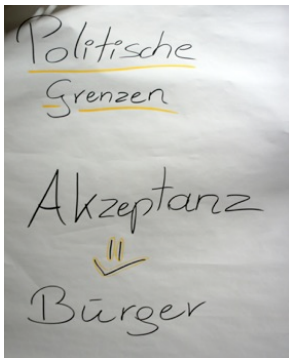 Politische
Grenzen
Akzeptanz
Bürger